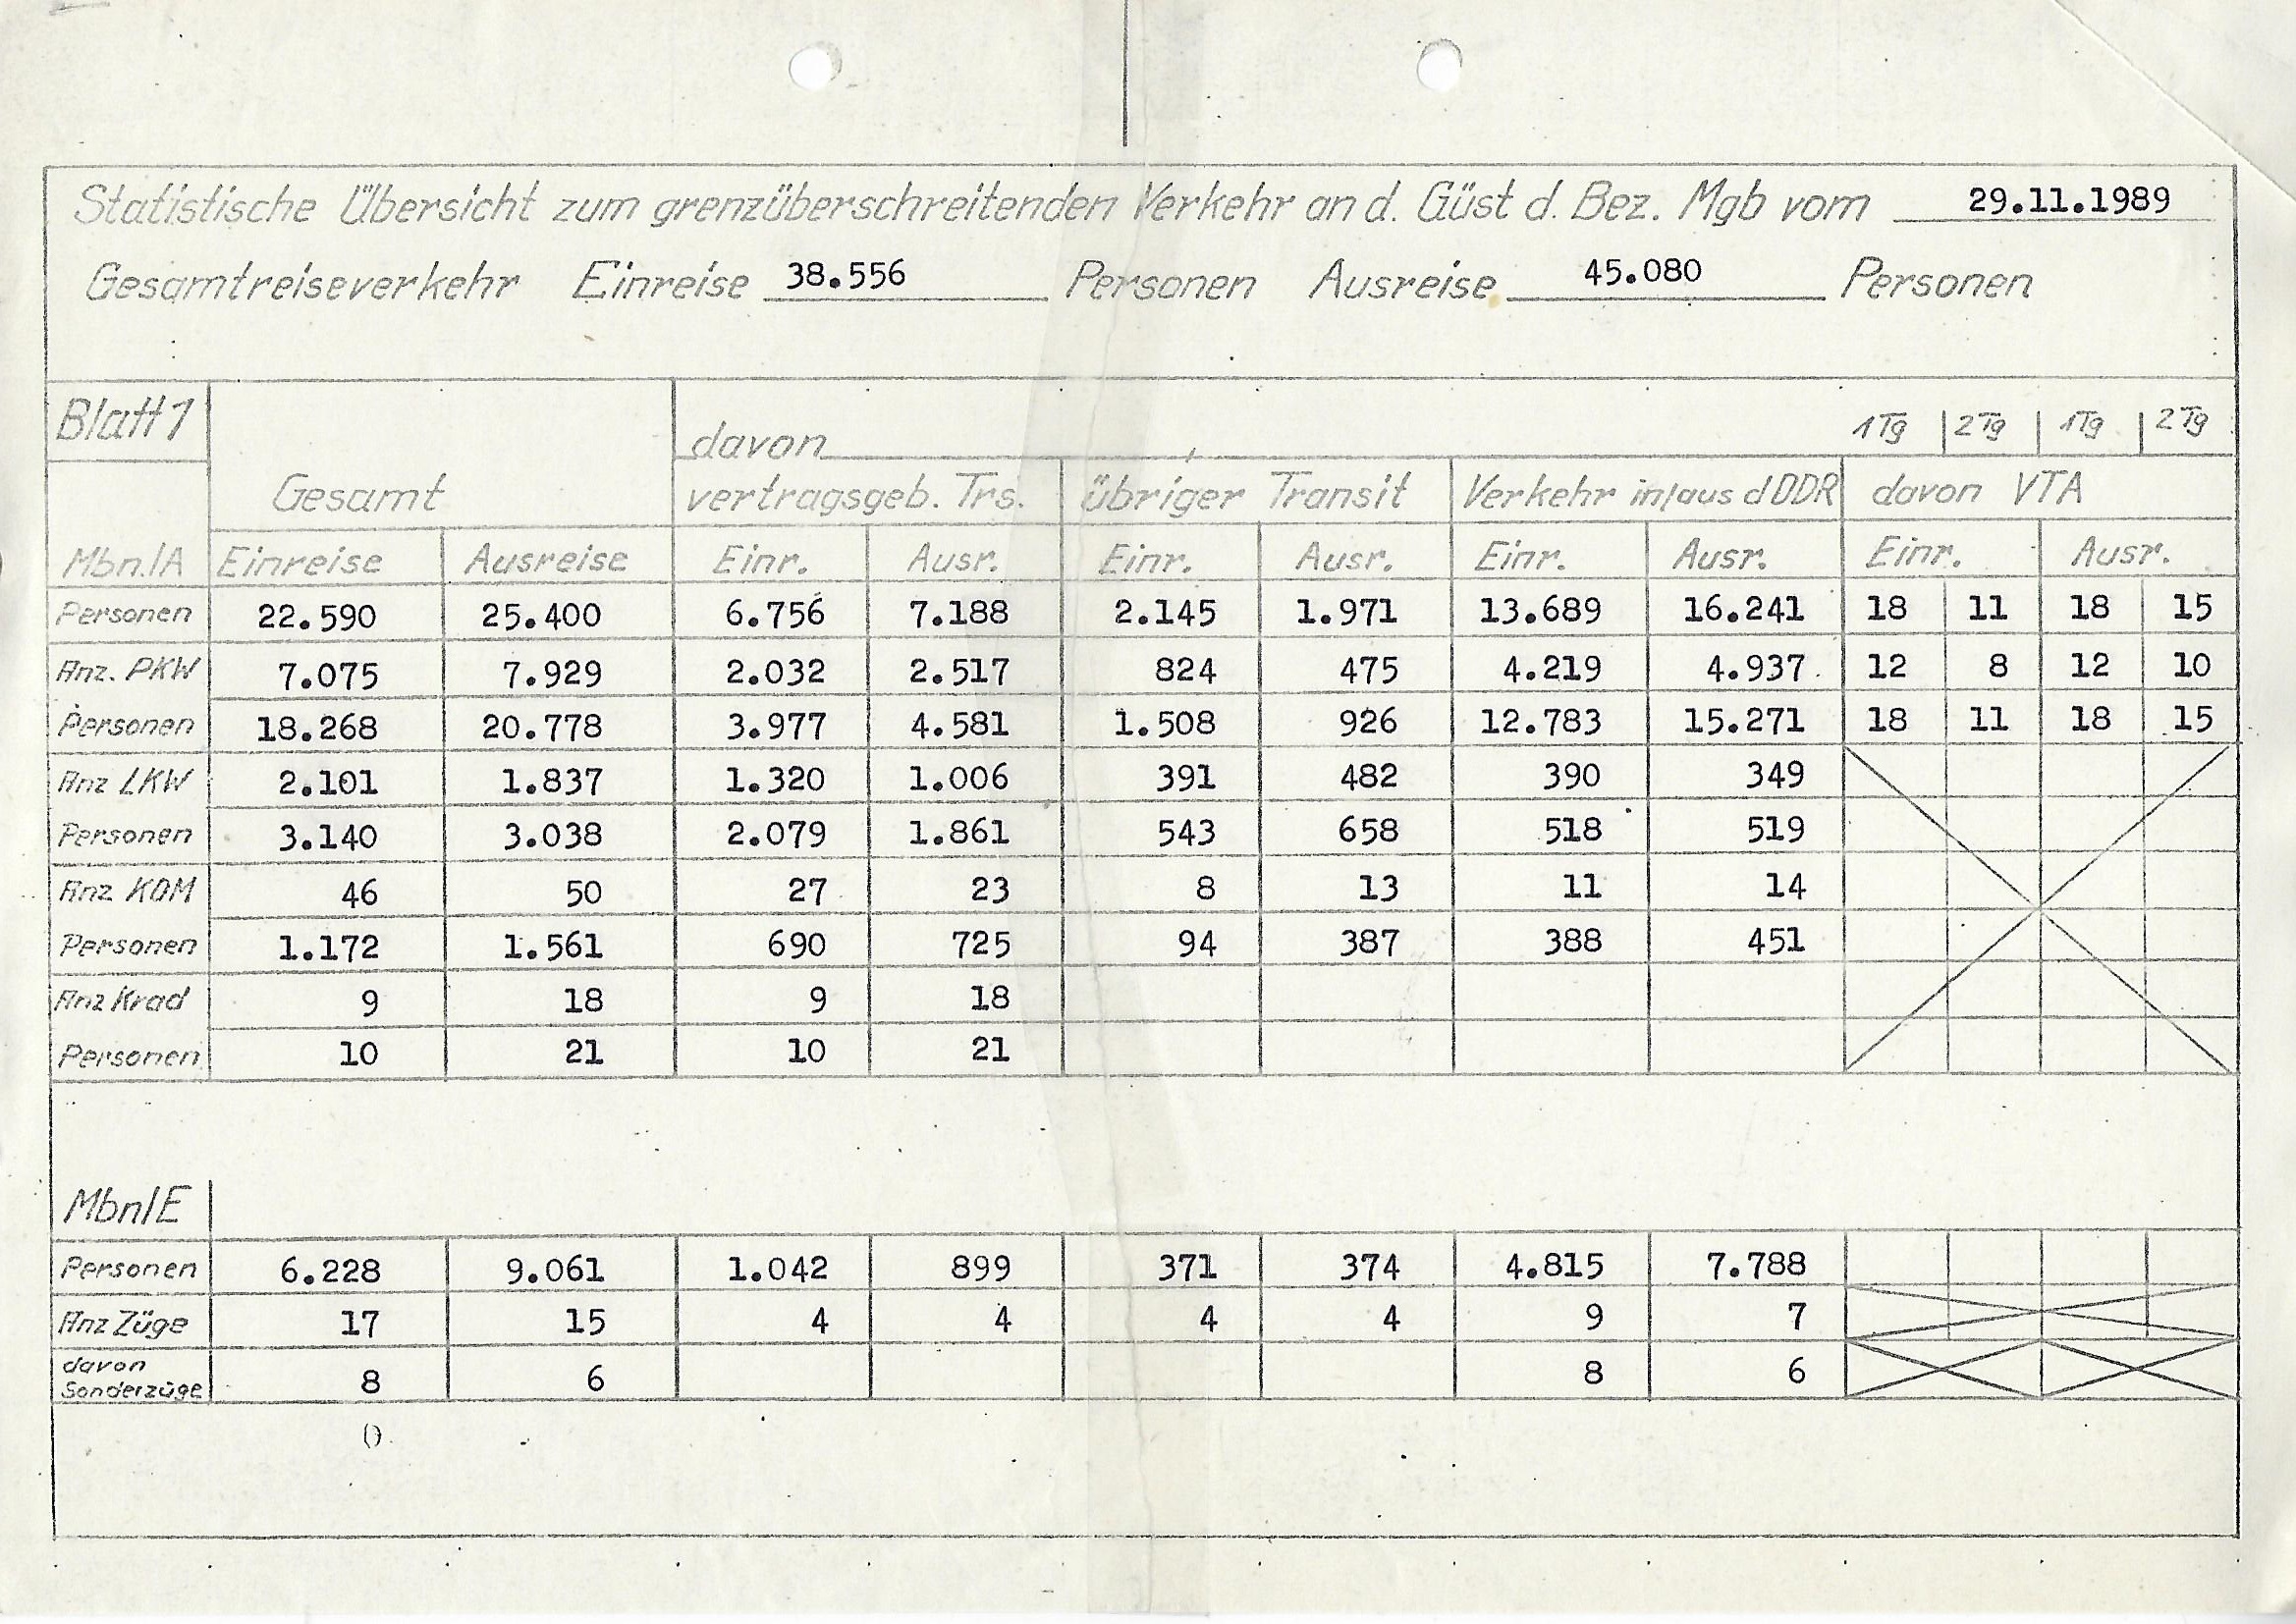 Statistische Übersicht zum grenzüberschreitenden Verkehr an d. Güst d. Bez. Mgb vom 29.11.1989
Gesamtreiseverkehr Einreise 38.556 Personen Ausreise 45.080 Personen
Blatt 1 davon 1Tg 2Tg 1Tg 2Tg
Gesamt vertragsgeb. Trs. übriger Transit Verkehr in/aus d DDR davon VTA
Mbn./A Einreise Ausreise Einr. Ausr. Einr. Ausr. Einr. Ausr. Einr. Ausr.
Personen 22.590 25.400 6.756 7.188 2.145 1.971 13.689 16.241 18 11 18 15
Anz. PKW 7.075 7.929 2.032 2.517 824 475 4.219 4.937 12 8 12 10
Personen 18.268 20.778 3.977 4.581 1.508 926 12.783 15.271 18 11 18 15
Anz LKW 2.101 1.837 1.320 1.006 391 482 390 349
Personen 3.140 3.038 2.079 1.861 543 658 518 519
Anz KOM 46 50 27 23 8 13 11 14
Personen 1.172 1.561 690 725 94 387 388 451
Anz Krad 9 18 9 18
Personen 10 21 10 21
Mbn/E
Personen 6.228 9.061 1.042 899 371 374 4.815 7.788
Anz Züge 17 15 4 4 4 4 9 7
davon
Sonderzüge 8 6 8 6
()